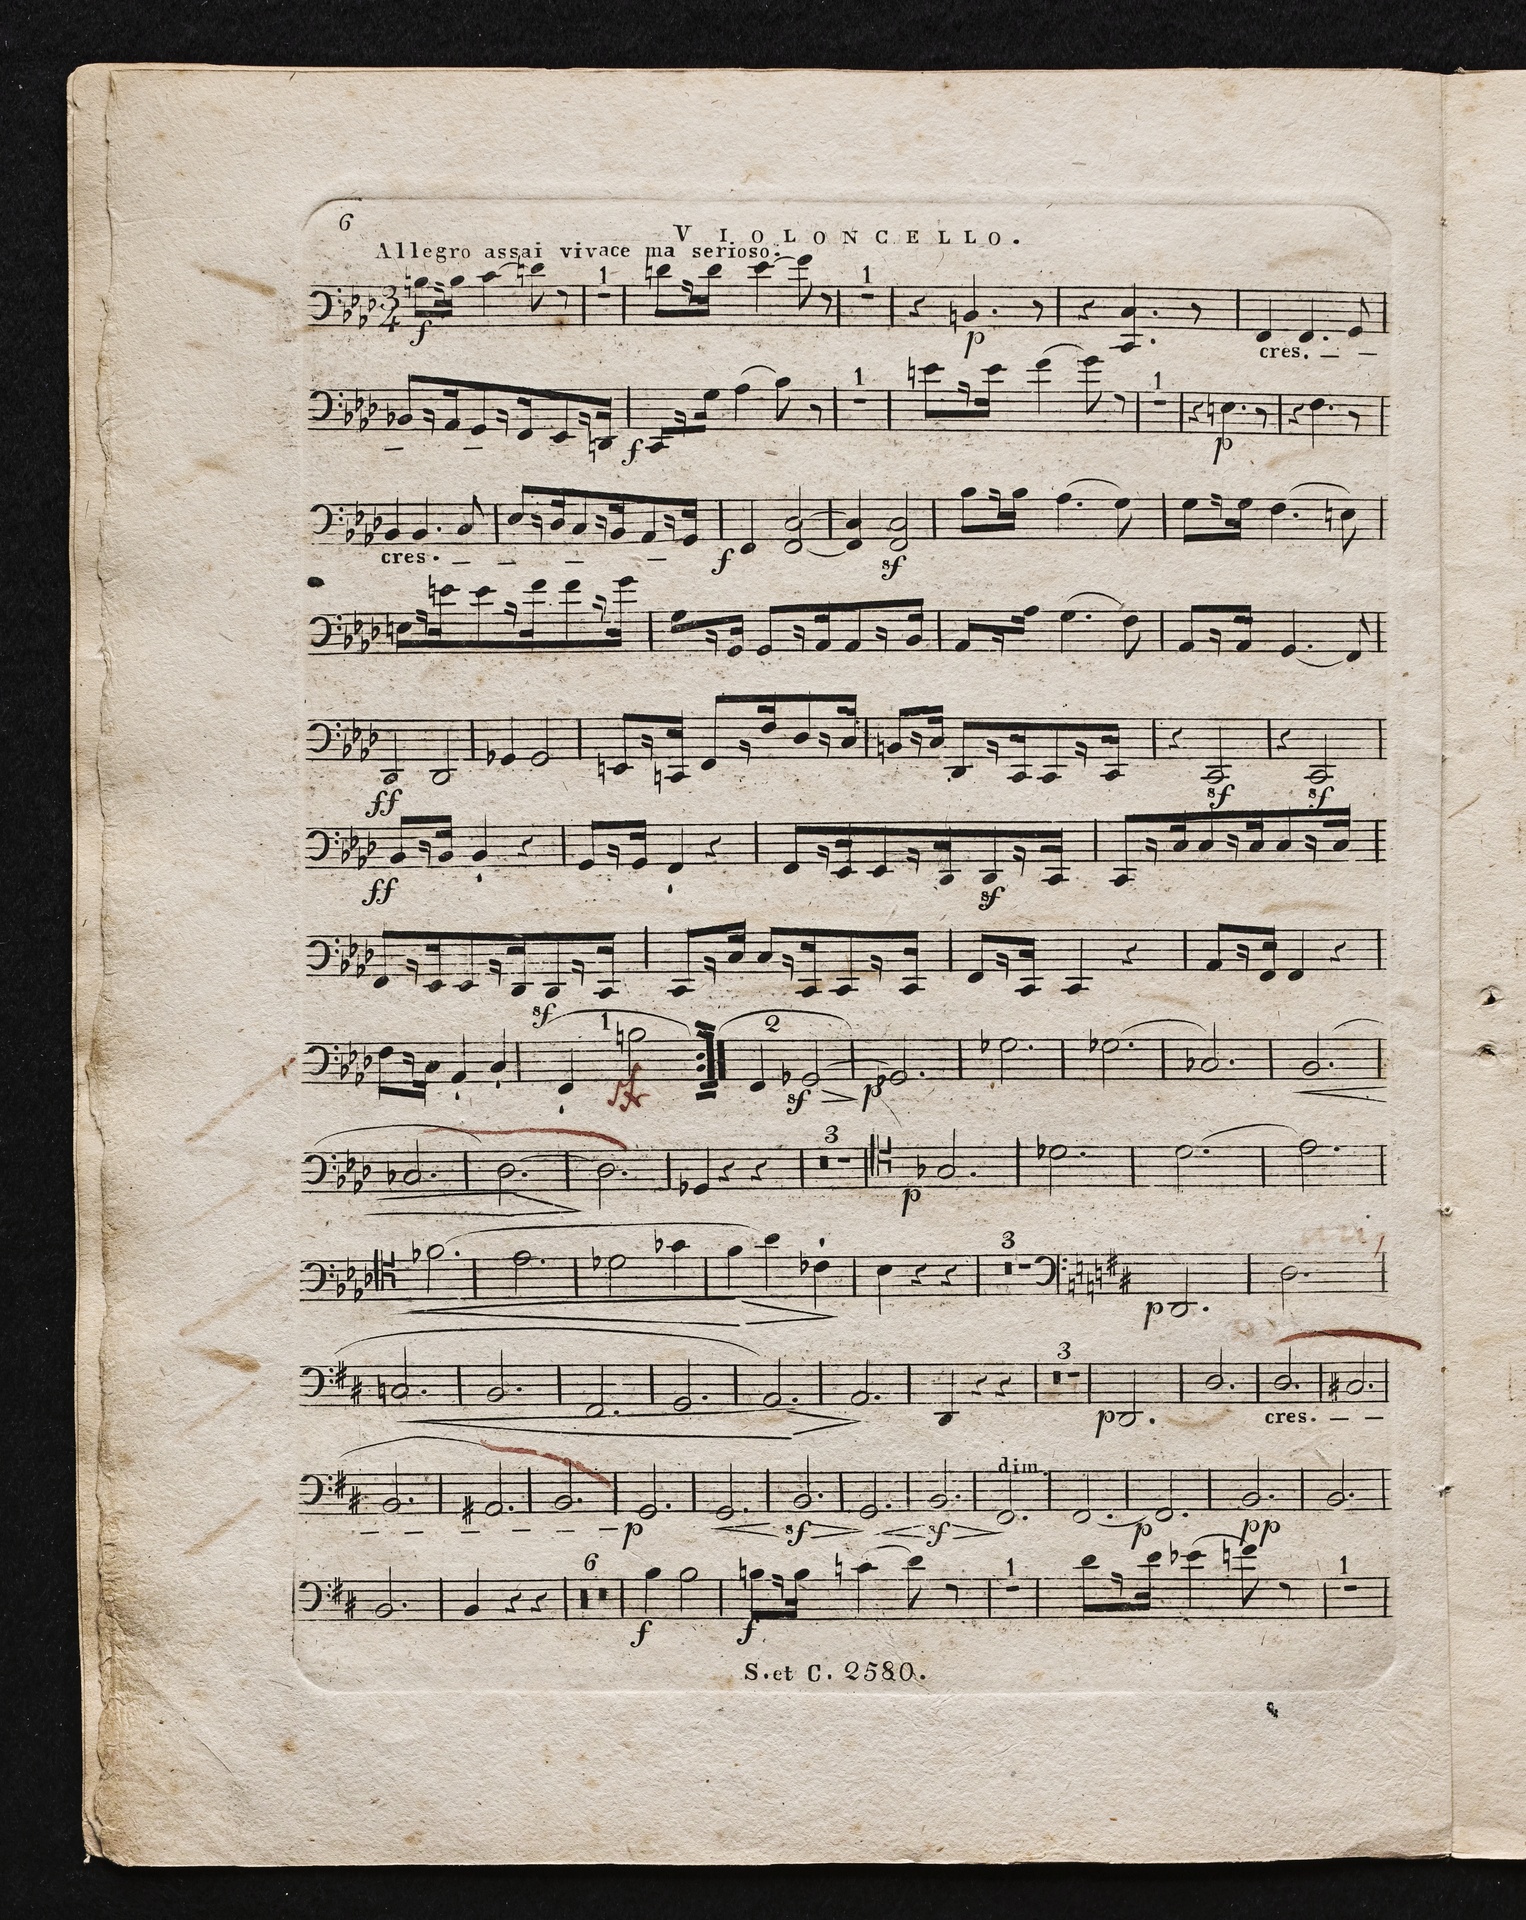 6
VIOLONCELLO.
Allegro assai vivace ma serioso.
1 1
3
4
f p cres. _ _
1 1
_ _ f p
cres. _ _ _ _ f sf
ff sf sf
ff sf
sf
1 2
sf p
3
p
3
p
3
p cres. _ _
dim.
_ _ _ _ _ _ p sf sf p pp
6 1 1
f f
S. et C. 2580.